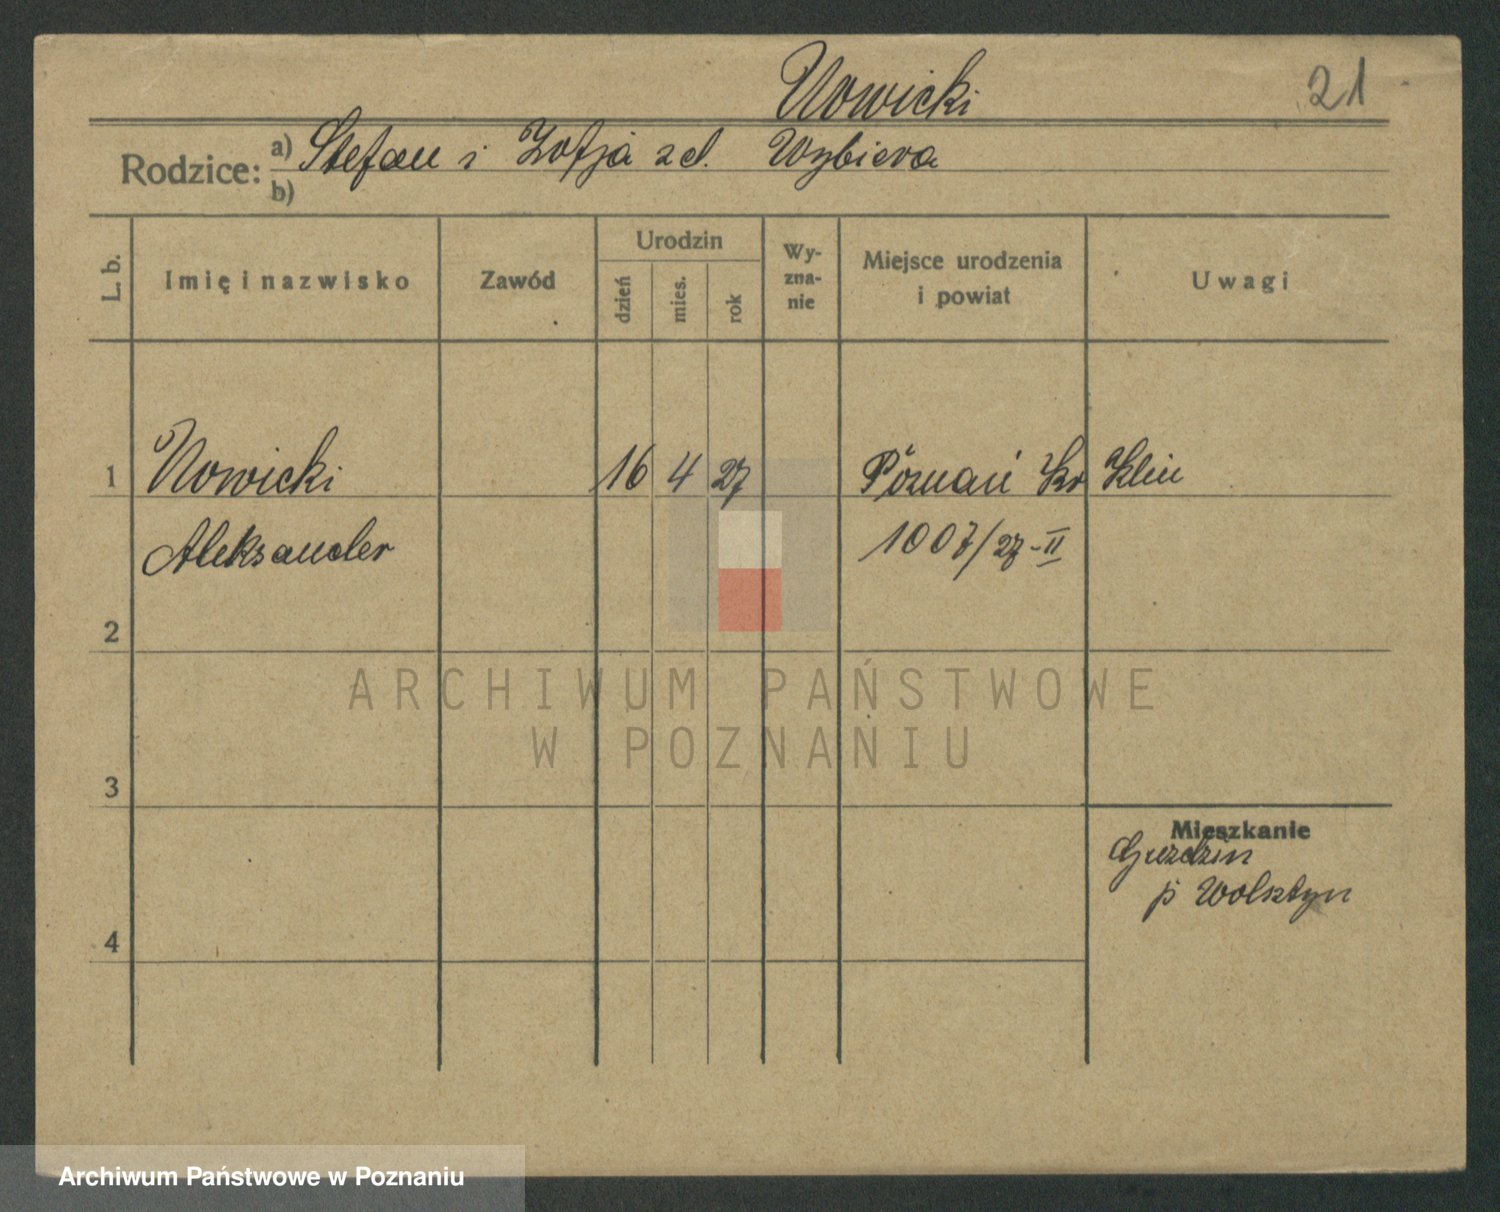 Nowicki 21
Rodzice: a) Stefan i Zofja zd. Wybiera
b)
L. b. Imię i nazwisko Zawód Urodzin dzień mies. rok Wyznanie Miejsce urodzenia i powiat Uwagi
1 Nowicki 16 4 27 Poznań Kr Klin
Aleksander 1007/27-II
2
ARCHIWUM PAŃSTWOWE
W POZNANIU
3
Mieszkanie
p Wolsztyn
4
Archiwum Państwowe w Poznaniu